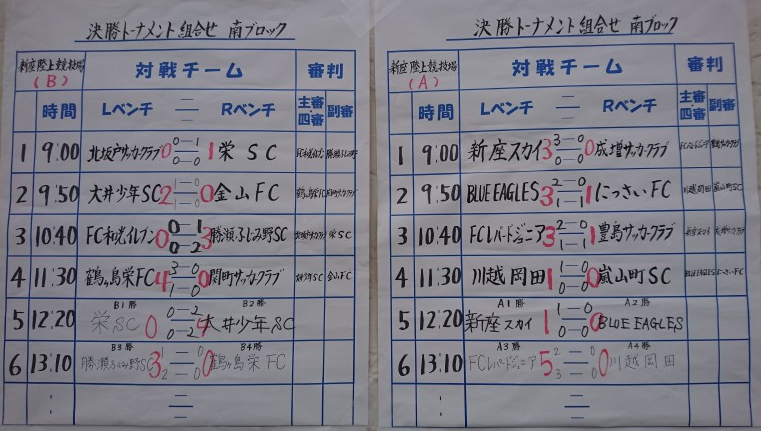 決勝トーナメント組合せ 南ブロック
新座陸上競技場 (B) 対戦チーム 審判
時間 Lベンチ — Rベンチ 主審・四審 副審
1 9:00 北坂戸サッカークラブ 0 0—1 0—0 1 栄SC FC和光イレブン 勝瀬ふじみ野
2 9:50 大井少年SC 2 1—0 1—0 0 金山FC
3 10:40 FC和光イレブン 0 0—1 0—2 3 勝瀬ふじみ野SC 北坂戸サッカークラブ 栄SC
4 11:30 鶴ヶ島栄FC 4 3—0 1—0 0 関町サッカークラブ 大井少年SC 金山FC
B1勝 B2勝
5 12:20 栄SC 0 0—2 0—2 4 大井少年SC
B3勝 B4勝
6 13:10 勝瀬ふじみ野SC 3 1—0 2—0 0 鶴ヶ島栄FC
: : —
決勝トーナメント組合せ 南ブロック
新座陸上競技場 (A) 対戦チーム 審判
時間 Lベンチ — Rベンチ 主審・四審 副審
1 9:00 新座スカイ 3 3—0 0—0 0 成増サッカークラブ
2 9:50 BLUE EAGLES 3 2—0 1—1 1 にっさいFC 川越岡田 嵐山町SC
3 10:40 FCレパードジュニア 3 2—0 1—1 1 豊島サッカークラブ 新座スカイ
4 11:30 川越岡田 1 1—0 0—0 0 嵐山町SC BLUE EAGLES にっさいFC
A1勝 A2勝
5 12:20 新座スカイ 1 1—0 0—0 0 BLUE EAGLES
A3勝 A4勝
6 13:10 FCレパードジュニア 5 2—0 3—0 0 川越岡田
: : —